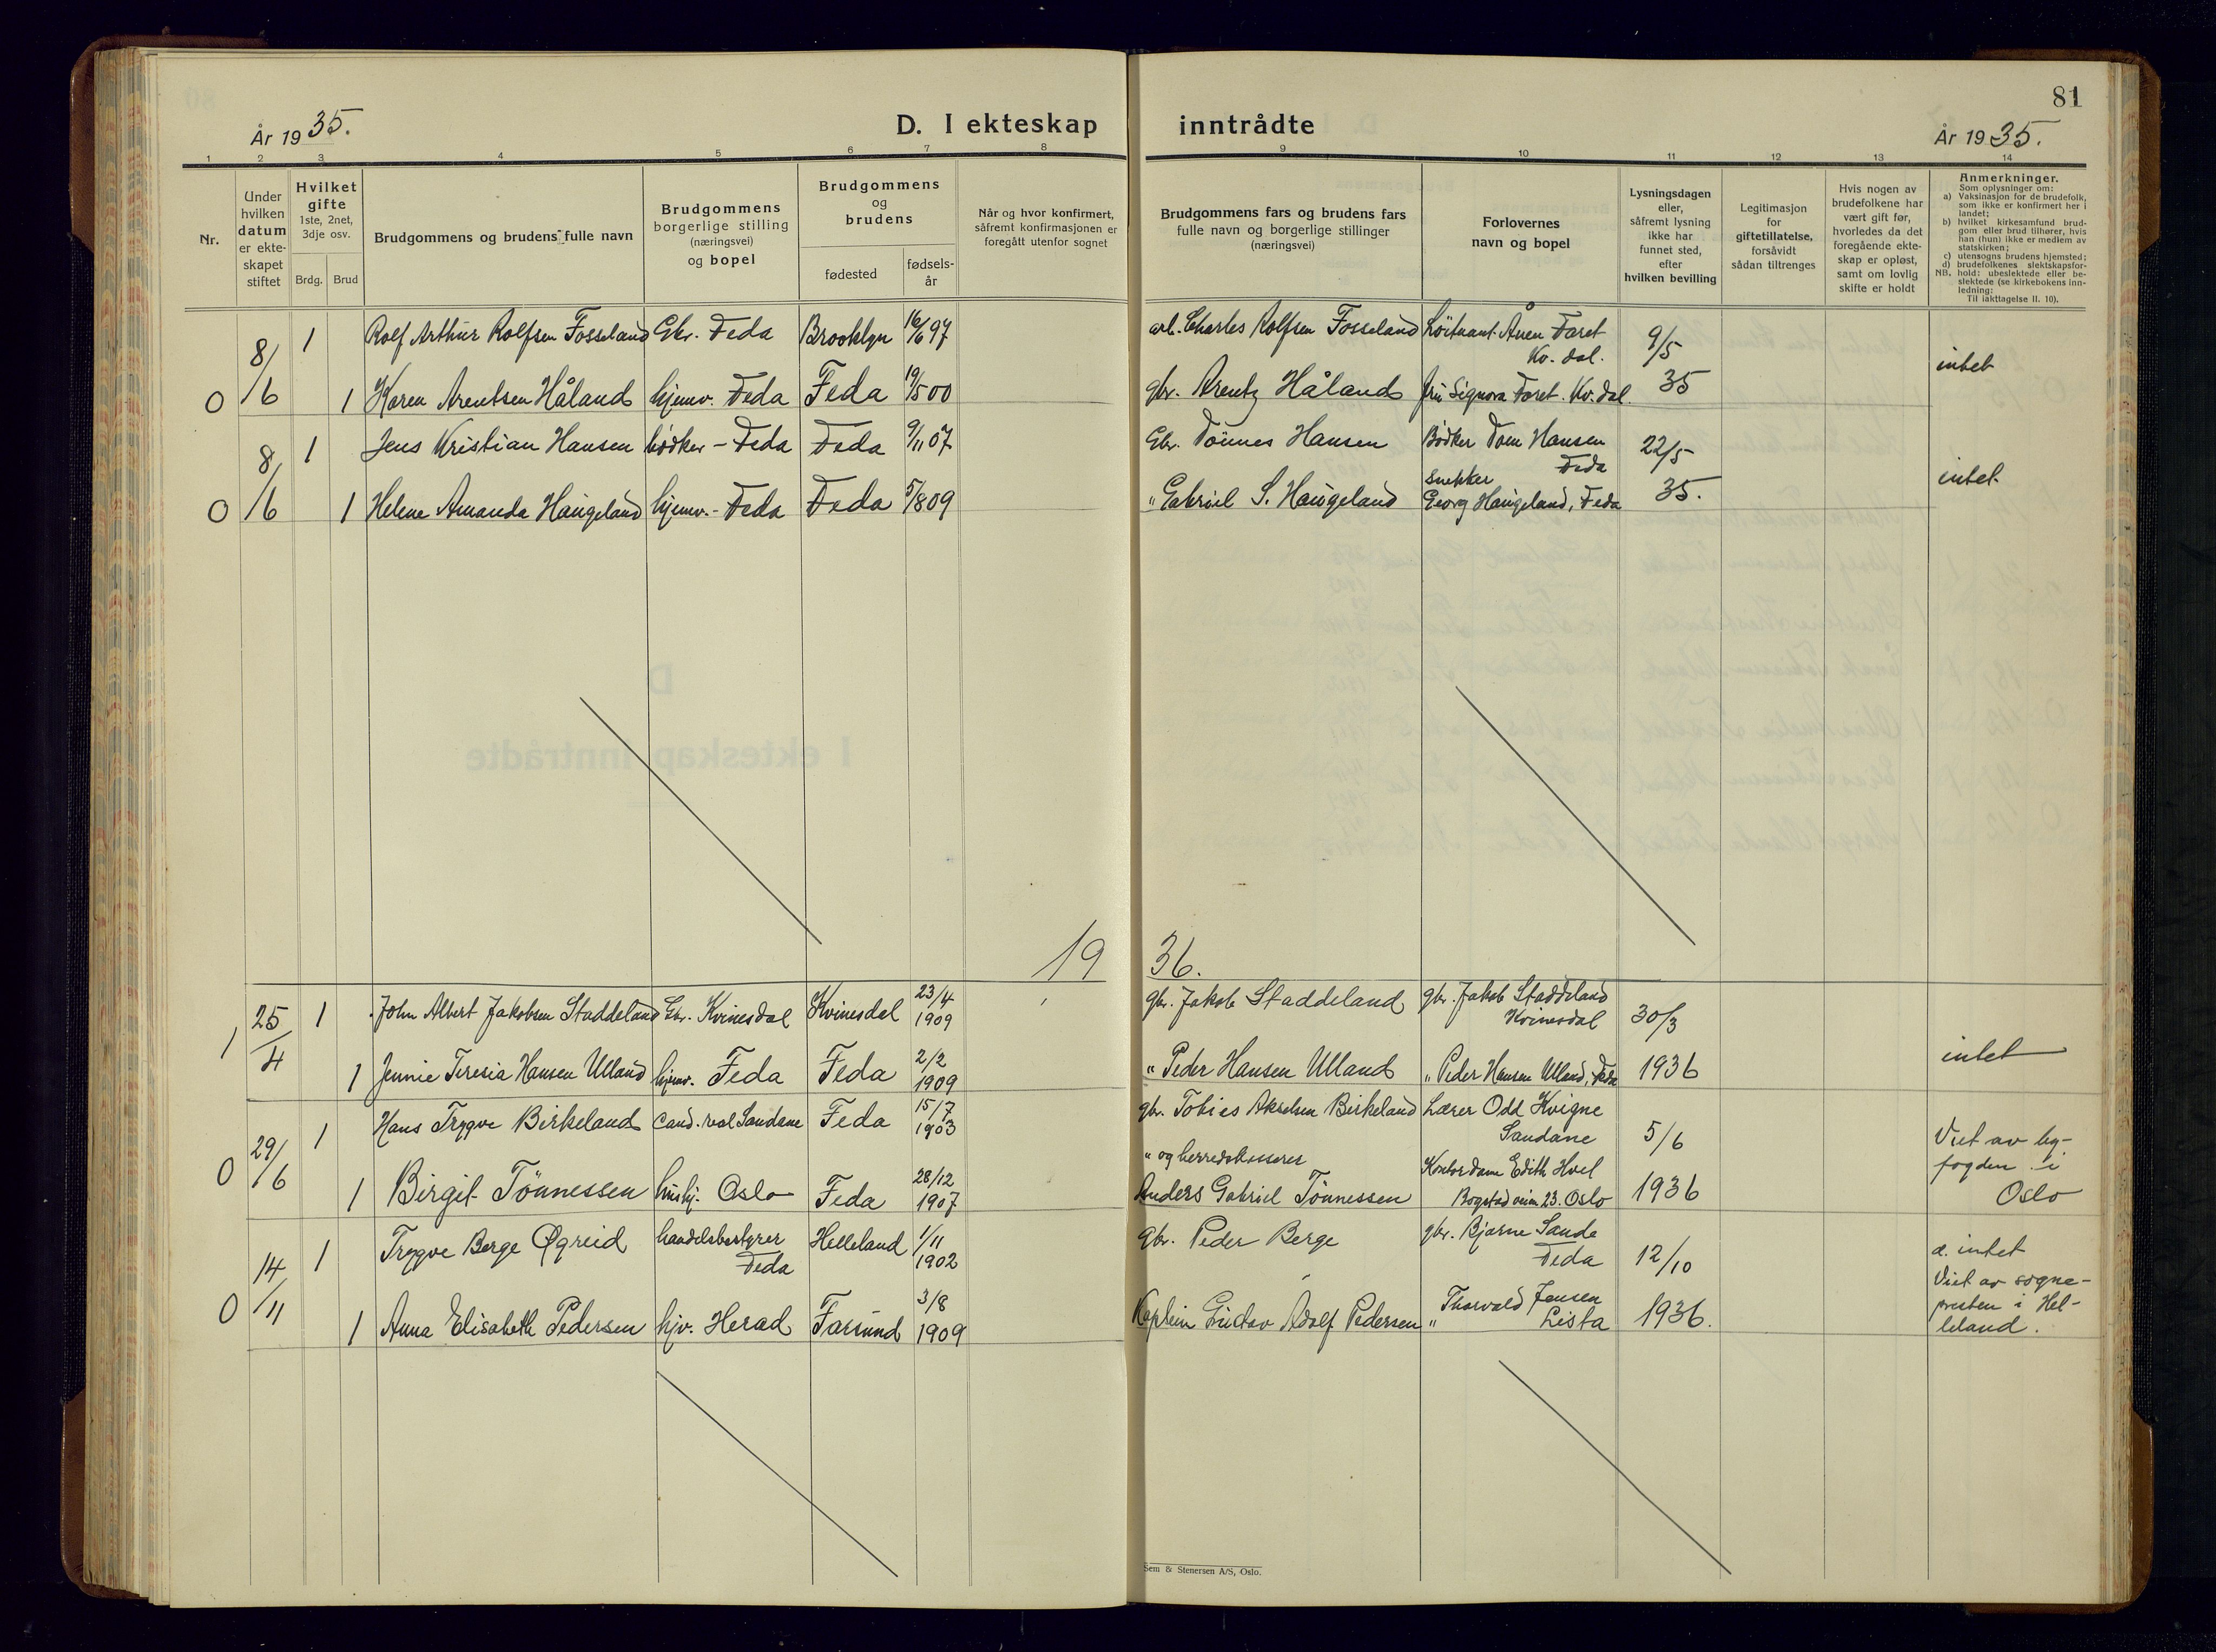 År 1935.
D. I ekteskap inntrådte
81
År 1935.
1 2 3 4 5 6 7 8 9 10 11 12 13 14
Nr.
Under hvilken datum er ekte-skapet stiftet
Hvilket gifte
1ste, 2net, 3dje osv.
Brdg. Brud
Brudgommens og brudens fulle navn
Brudgommens borgerlige stilling (næringsvei) og bopel
Brudgommens og brudens
fødested
fødsels-år
Når og hvor konfirmert, såfremt konfirmasjonen er foregått utenfor sognet
Brudgommens fars og brudens fars fulle navn og borgerlige stillinger (næringsvei)
Forlovernes navn og bopel
Lysningsdagen eller, såfremt lysning ikke har funnet sted, efter hvilken bevilling
Legitimasjon for giftetillatelse, forsåvidt sådan tiltrenges
Hvis nogen av brudefolkene har vært gift før, hvorledes da det foregående ekte-skap er opløst, samt om lovlig skifte er holdt
Anmerkninger.
Som oplysninger om:
a) Vaksinasjon for de brudefolk, som ikke er konfirmert her i landet;
b) hvilket kirkesamfund brud-gom eller brud tilhører, hvis han (hun) ikke er medlem av statskirken;
c) utensogns brudens hjemsted;
d) brudefolkenes slektskapsfor-hold: ubeslektede eller be-slektede (se kirkebokens inn-ledning:
NB. Til iakttagelse II. 10).
8/6 1 Rolf Arthur Rolfsen Fosseland Gbr. Feda Brooklyn 16/6 97 arb. Charles Rolfsen Fosseland Löitnant Ånen Faret Kv. dal. 9/5
intet
0 1 Karen Arentsen Håland hjemv. Feda Feda 19/5 00 gbr. Arentz Håland fru Signora Faret. Kv. dal. 35
8/6 1 Jens Kristian Hansen bödker - Feda Feda 9/11 07 Gbr. Tönnes Hansen Bödker Tom Hansen Feda 22/5
intet
0 1 Helene Amanda Haugeland hjemv. - Feda Feda 5/8 09 " Gabriel S. Haugeland snekker Georg Haugeland, Feda 35.
1936.
25/4 1 John Albert Jakobsen Staddeland Gbr. Kvinesdal Kvinesdal 23/4 1909 gbr. Jakob Staddeland gbr. Jakob Staddeland Kvinesdal 30/3
intet
1 1 Jennie Teresia Hansen Ulland hjemv. Feda Feda 2/2 1909 " Peder Hansen Ulland " Peder Hansen Ulland, Feda 1936
29/6 1 Hans Trygve Birkeland cand. real Sandane Feda 15/7 1903 gbr. Tobies Akselsen Birkeland Lærer Odd Kvigne Sandane 5/6
Viet av by-
fogden i
Oslo
0 1 Birgit Tönnessen hushj. Oslo Feda 28/12 1907 " og herredskasserer Anders Gabriel Tönnessen Kontordame Edith Hoel Bogstadveien 23. Oslo 1936
14/11 1 Trygve Berge Øgreid handelsbestyrer Feda Helleland 1/11 1902 gbr. Peder Berge gbr. Bjarne Sande Feda 12/10
d. intet
Viet av sogne-
presten i Hel-
leland.
0 1 Anna Elisabeth Pedersen hjv. Herad Farsund 3/8 1909 Kaptein Gustav Adolf Pedersen " Thorvald Jensen Lista 1936.
Sem & Stenersen A/S, Oslo.